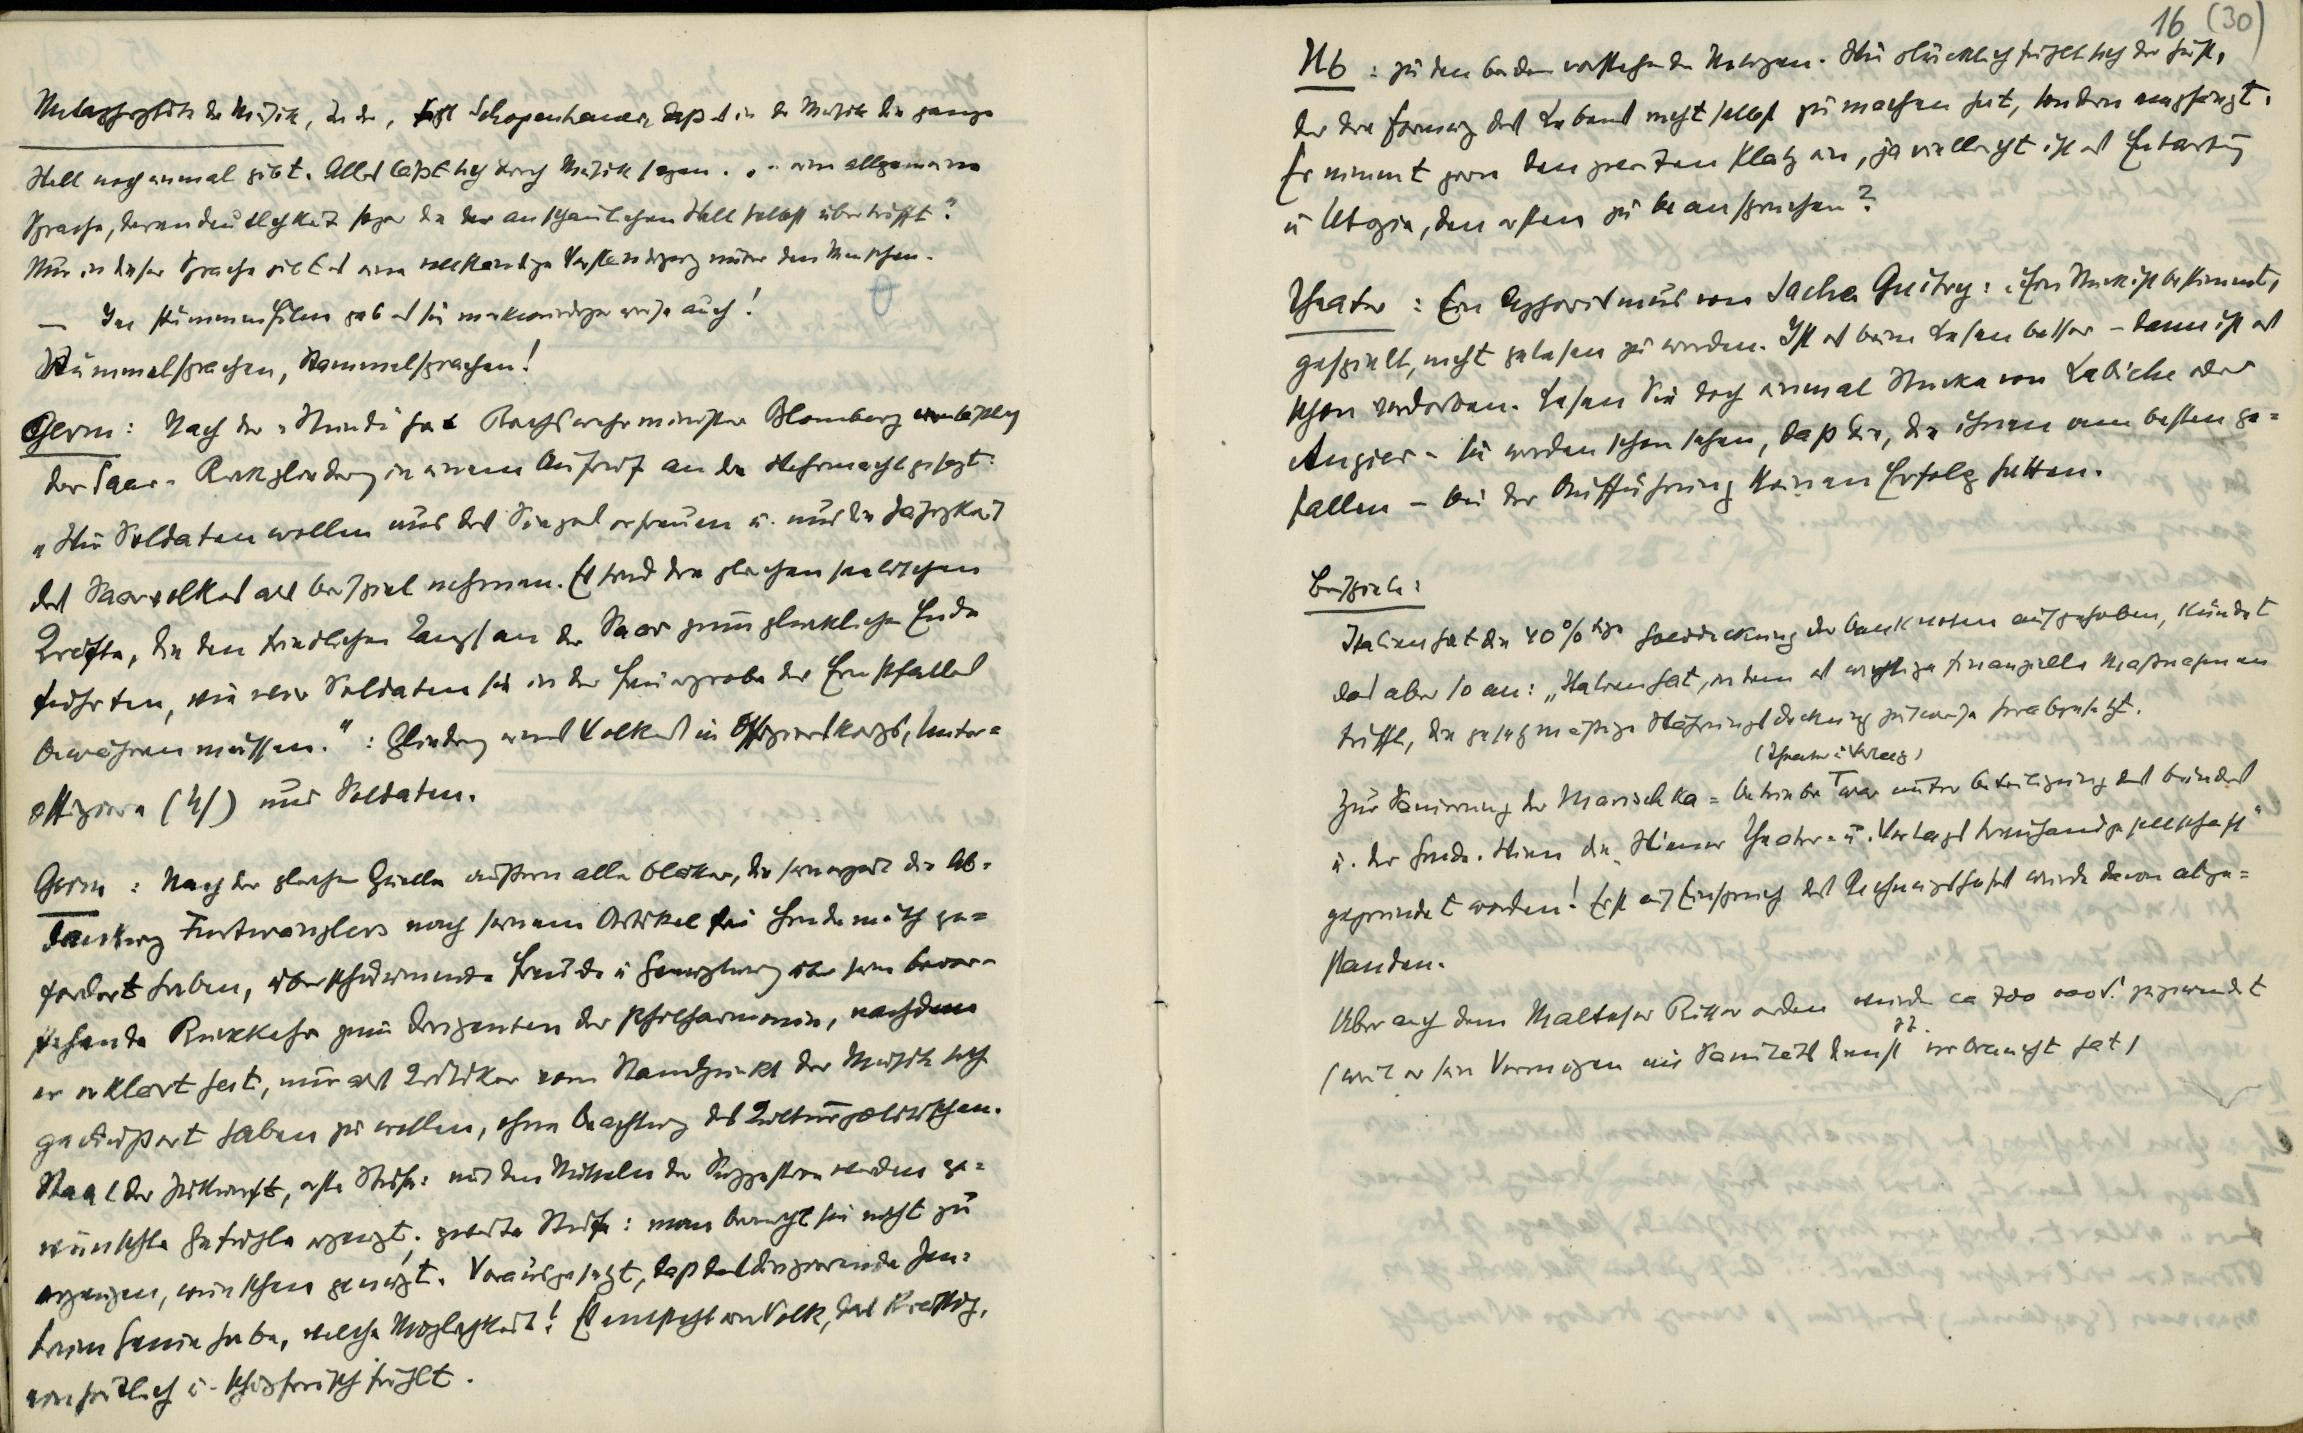 Metaphysik der Musik, In der, sagt Schopenhauer, daß es in der Musik die ganze
Welt noch einmal gibt. Alles läßt sich durch Musik sagen. .. eine allgemeine
Sprache, deren Deutlichkeit sogar die der anschaulichen Welt selbst übertrifft".
Nur in dieser Sprache gibt es eine vollständige Verständigung unter den Menschen.
— Im stummen Film gab es sie merkwürdigerweise auch!
Stummelsprachen, Stammelsprachen!
Germ: Nach der "Stunde" hat Reichswehrminister Blomberg anläßlich
der Saar-Rückgliederung in einem Aufruf an die Wehrmacht gesagt:
"Wir Soldaten wollen uns des Sieges erfreuen u. uns die Zähigkeit
des Saarvolkes als Beispiel nehmen. Es sind die gleichen seelischen
Kräfte, die den friedlichen Kampf an der Saar zum glücklichen Ende
führten, wie wir Soldaten sie in der Feuerprobe des Ernstfalles
bewähren müssen.": Gliederung eines Volkes in Offizierskorps, Unter=
offiziere (4/) und Soldaten.
Germ: Nach der gleichen Quelle äußern alle Blätter, die seinerzeit die Ab-
dankung Furtwänglers nach seinem Artikel für Hindemith ge=
fordert haben, überschäumende Freude u Genugtuung über seine bevor-
stehende Rückkehr zum Dirigenten der Philharmonie, nachdem
er erklärt hat, nur als Kritiker vom Standpunkt der Musik sich
geäußert haben zu wollen, ohne Beachtung des Kulturpolitischen.
Staat der Zukunft, erste Stufe: mit den Mitteln der Suggestion werden ge=
wünschte Gefühle erzeugt; zweite Stufe: man braucht sie nicht zu
erzeugen, wünschen genügt. Vorausgesetzt, daß das dirigierende Zen=
trum Genie habe, welche Möglichkeit! Es entsteht ein Volk, das kräftig,
einheitlich u. schöpferisch fühlt.
16 (30)
Nb: zu den beiden vorstehenden Notizen. Wie glücklich fühlt sich der Geist,
der die Formung des Lebens nicht selbst zu machen hat, sondern empfängt.
Er nimmt gern den zweiten Platz ein, ja vielleicht ist es Entartung
u Utopie, den ersten zu beanspruchen?
Theater: Ein Aphorismus von Sacha Guitry: "Ein Stück ist bestimmt,
gespielt, nicht gelesen zu werden. Ist es beim Lesen besser – dann ist es
schon verdorben. Lesen Sie doch einmal Stücke von Labiche oder
Augier – Sie werden schon sehen, daß die, die Ihnen am besten ge=
fallen – bei der Aufführung keinen Erfolg hatten.
Beispiele:
Italien hat die 40%tige Golddeckung der Banknoten aufgehoben, kündet
das aber so an: "Italien hat, indem es wichtige finanzielle Maßnahmen
trifft, die gesetzmäßige Währungsdeckung zeitweise herabgesetzt.
(Theater u Verlag)
Zur Sanierung der Marischka=Betriebe war unter Beteiligung des Bundes
u. der Gmde. Wien die "Wiener Theater- u. Verlagstreuhandgesellschaft"
gegründet worden! Erst auf Einspruch des Rechnungshofes wurde davon abge=
standen.
Aber auch dem Malteser Ritterorden wurde ca 700 000 S. zugewendet
(weil er sein Vermögen im Sanitätsdienst verbraucht hat)